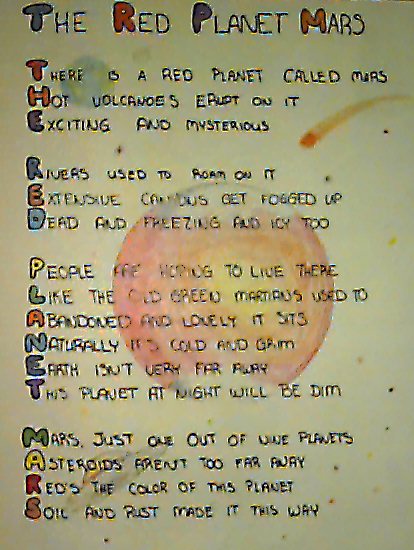 THE RED PLANET MARS
THERE IS A RED PLANET CALLED MARS
HOT VOLCANOES ERUPT ON IT
EXCITING AND MYSTERIOUS
RIVERS USED TO ROAM ON IT
EXTENSIVE CANYONS GET FOGGED UP
DEAD AND FREEZING AND ICY TOO
PEOPLE ARE HOPING TO LIVE THERE
LIKE THE OLD GREEN MARTIANS USED TO
ABANDONED AND LONELY IT SITS
NATURALLY IT'S COLD AND GRIM
EARTH ISN'T VERY FAR AWAY
THIS PLANET AT NIGHT WILL BE DIM
MARS, JUST ONE OUT OF NINE PLANETS
ASTEROIDS AREN'T TOO FAR AWAY
RED'S THE COLOR OF THIS PLANET
SOIL AND RUST MADE IT THIS WAY